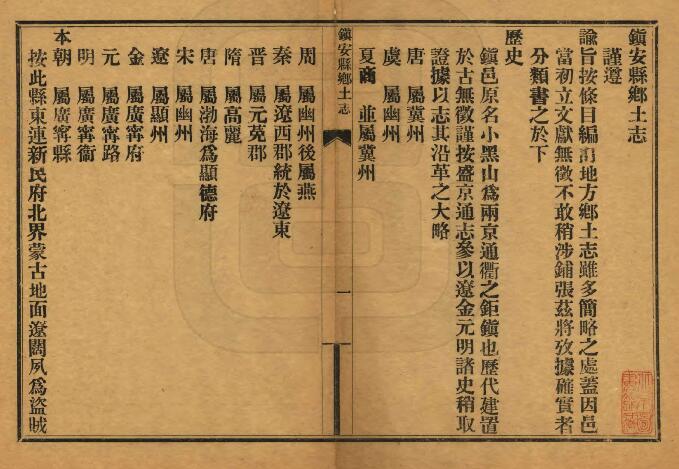 鎮安縣鄉土志
謹遵
諭旨按條目編為地方鄉土志雖多簡略之處蓋因邑
當初立文獻無徵不敢稍涉鋪張茲將攷據確實者
分類書之於下
歷史
鎮邑原名小黑山為兩京通衢之鉅鎮也歷代建置
於古無徵謹按盛京通志參以遼金元明諸史稍取
證據以志其沿革之大略
唐 屬冀州
虞 屬幽州
夏商 並屬冀州
鎮安縣鄉土志 一
周 屬幽州後屬燕
秦 屬遼西郡統於遼東
晉 屬元菟郡
隋 屬高麗
唐 屬渤海為顯德府
宋 屬幽州
遼 屬顯州
金 屬廣甯府
元 屬廣甯路
明 屬廣甯衛
本朝 屬廣甯縣
按此縣東連新民府北界蒙古地面遼闊夙為盜賊